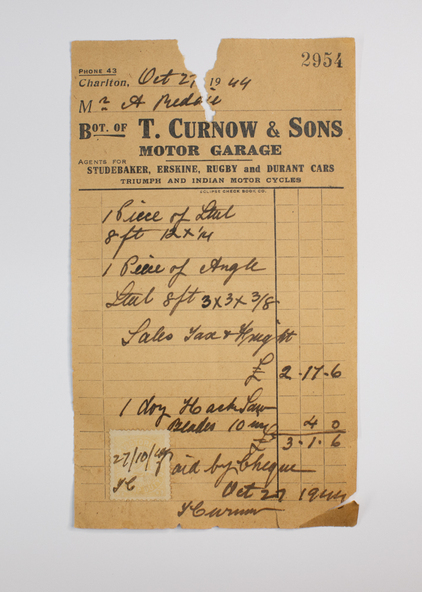 2954
PHONE 43
Charlton, Oct 27 1944
Mr A
BOT. OF T. CURNOW & SONS
MOTOR GARAGE
AGENTS FOR
STUDEBAKER, ERSKINE, RUGBY and DURANT CARS
TRIUMPH AND INDIAN MOTOR CYCLES
ECLIPSE CHECK BOOK CO.
1 Piece of Steel
8 ft 12 x 1/4
1 Piece of Angle
Steel 8ft 3x3x3/8
Sales Tax & Freight
£ 2-17-6
1 doz Hack Saw
Blades 10 4 0
£ 3-1-6
Paid by Cheque
27/10/44
Oct 27 1944
TC
TCurnow